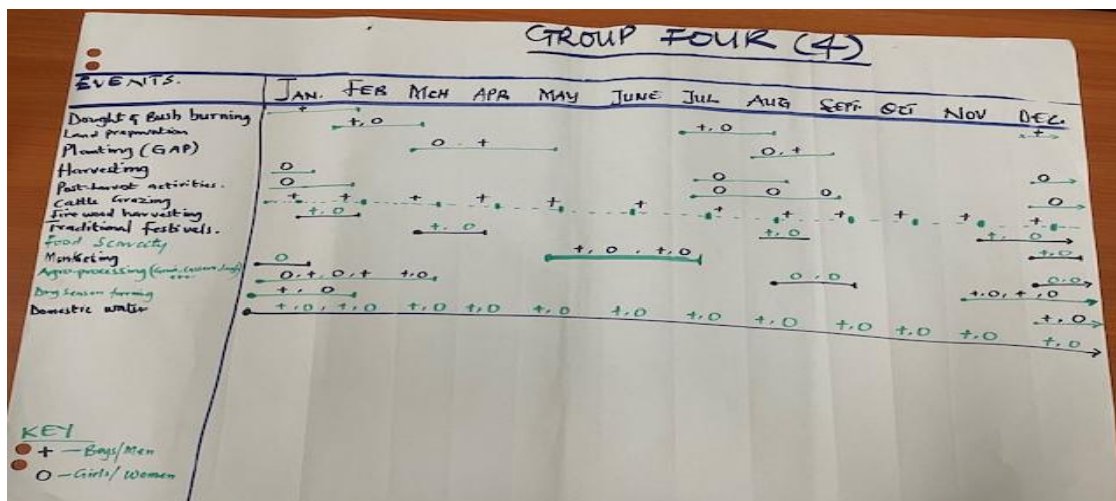 GROUP FOUR (4)
EVENTS. JAN. FEB MCH APR MAY JUNE JUL AUG SEPT. OCT NOV DEC.
Dought & Bush burning + +
Land preparation +, o +, o
Planting (GAP) o . + o, +
Harvesting o o o
Post-harvest activities. o o o o o
Cattle Grazing + + + + + + + + + + + +
Fire wood harvesting +, o +, o
Traditional festivels. +, o +, o
Food Scarcity +, o . +, o +, o
Marketing o o, o o, o
Agro-processing ( o, +, o, + +, o +, o, +, o
Dry season farming +, o +, o
Domestic water +, o, +, o +, o +, o +, o +, o +, o +, o +, o +, o +, o +, o
KEY
+ — Boys/Men
O — Girls/Women